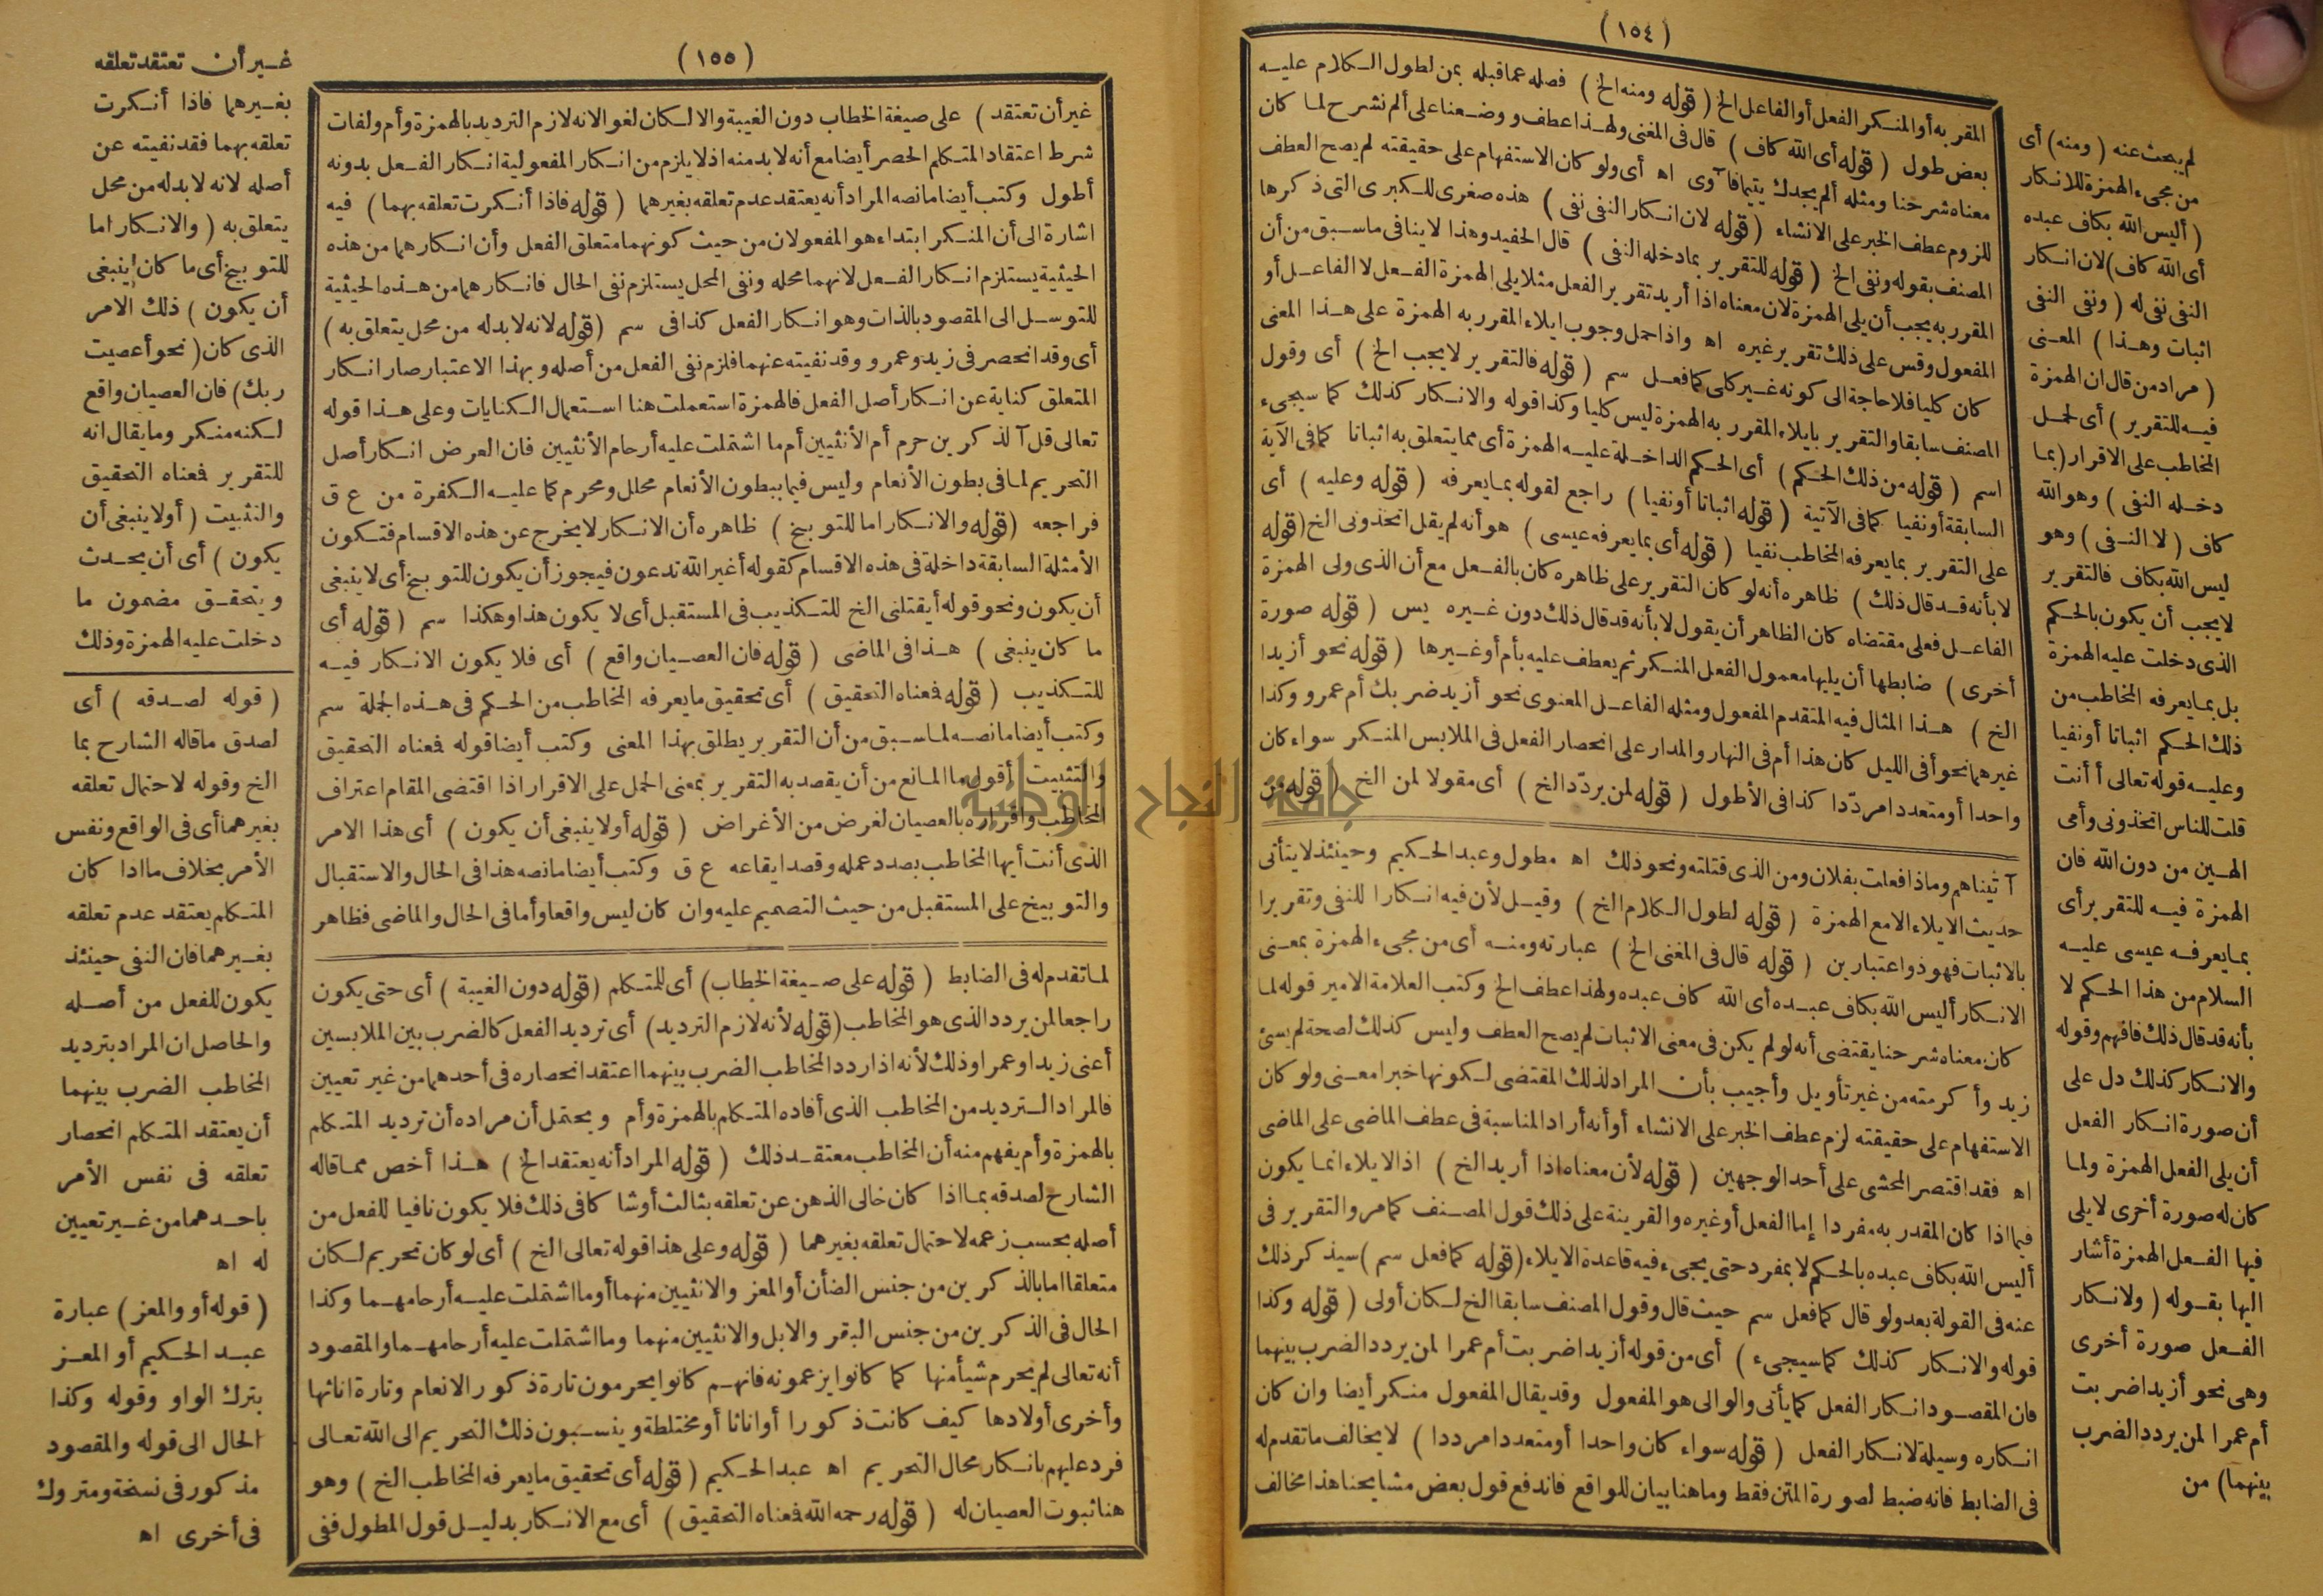 (١٥٤)
المقر به أو المنكر الفعل أو الفاعل الخ (قوله ومنه الخ) فصله عما قبله بمن لطول الكلام عليه
بعض طول (قوله أى الله كاف) قال فى المغنى ولهذا عطف ووضعنا على ألم نشرح لما كان
معناه شرحنا ومثله ألم يجدك يتيما فآوى اه أى ولو كان الاستفهام على حقيقته لم يصح العطف
للزوم عطف الخبر على الانشاء (قوله لان انكار النفى نفى) هذه صغرى للكبرى التى ذكرها
المصنف بقوله ونفى الخ (قوله للتقرير بما دخله النفى) قال الحفيد وهذا لا ينافى ماسبق من أن
المقرر به يجب أن يلى الهمزة لان معناه اذا أريد تقرير الفعل مثلا يلى الهمزة الفعل لا الفاعل أو
المفعول وقس على ذلك تقرير غيره اه واذا حمل وجوب ايلاء المقرر به الهمزة على هذا المعنى
كان كليا فلا حاجة الى كونه غير كلى كما فعل سم (قوله فالتقرير لا يجب الخ) أى وقول
المصنف سابقا والتقرير بايلاء المقرر به الهمزة ليس كليا وكذا قوله والانكار كذلك كما سيجىء
اسم (قوله من ذلك الحكم) أى الحكم الداخلة عليه الهمزة أى مما يتعلق به اثباتا كما فى الآية
السابقة أو نفيا كما فى الآتية (قوله اثباتا أو نفيا) راجع لقوله بما يعرفه (قوله وعليه) أى
على التقرير بما يعرفه المخاطب نفيا (قوله أى بما يعرفه عيسى) هو أنه لم يقل اتخذونى الخ (قوله
لا بأنه قد قال ذلك) ظاهره أنه لو كان التقرير على ظاهره كان بالفعل مع أن الذى ولى الهمزة
الفاعل فعلى مقتضاه كان الظاهر أن يقول لا بأنه قد قال ذلك دون غيره يس (قوله صورة
أخرى) ضابطها أن يليها معمول الفعل المنكر ثم يعطف عليه بأم أو غيرها (قوله نحو أزيدا
الخ) هذا المثال فيه المتقدم المفعول ومثله الفاعل المعنوى نحو أزيد ضربك أم عمرو وكذا
غيرهما نحو أفى الليل كان هذا أم فى النهار والمدار على انحصار الفعل فى الملابس المنكر سواء كان
واحدا أو متعددا مرددا كذا فى الأطول (قوله لمن يردّد الخ) أى مقولا لمن الخ (قوله من
آ تيناهم وماذا فعلت بفلان ومن الذى قتلته ونحو ذلك اه مطول وعبد الحكيم وحينئذ لا يتأتى
حديث الايلاء الا مع الهمزة (قوله لطول الكلام الخ) وقيل لأن فيه انكارا للنفى وتقريرا
بالاثبات فهو ذو اعتبارين (قوله قال فى المغنى الخ) عبارته ومنه أى من مجىء الهمزة بمعنى
الانكار أليس الله بكاف عبده أى الله كاف عبده ولهذا عطف الخ وكتب العلامة الامير قوله لما
كان معناه شرحنا يقتضى أنه لو لم يكن فى معنى الاثبات لم يصح العطف وليس كذلك لصحة لم يسئ
زيد وأكرمته من غير تأويل وأجيب بأن المراد لذلك المقتضى لكونها خبرا معنى ولو كان
الاستفهام على حقيقته لزم عطف الخبر على الانشاء أو أنه أراد المناسبة فى عطف الماضى على الماضى
اه فقد اقتصر المحشى على أحد الوجهين (قوله لأن معناه اذا أريد الخ) اذ الايلاء انما يكون
فيما اذا كان المقدر به مفردا إما الفعل أو غيره والقرينة على ذلك قول المصنف كما مر والتقرير فى
أليس الله بكاف عبده بالحكم لا بمفرد حتى يجىء فيه قاعدة الايلاء (قوله كما فعل سم) سيذكر ذلك
عنه فى القولة بعد ولو قال كما فعل سم حيث قال وقول المصنف سابقا الخ لكان أولى (قوله وكذا
قوله والانكار كذلك كما سيجىء) أى من قوله أزيدا ضربت أم عمرا لمن يردد الضرب بينهما
فان المقصود انكار الفعل كما يأتى والوالى هو المفعول وقد يقال المفعول منكر أيضا وان كان
انكاره وسيلة لانكار الفعل (قوله سواء كان واحدا أو متعددا مرددا) لا يخالف ما تقدم له
فى الضابط فانه ضبط لصورة المتن فقط وما هنا بيان للواقع فاندفع قول بعض مشايخنا هذا مخالف
لم يبحث عنه (ومنه) أى
من مجىء الهمزة للانكار
(أليس الله بكاف عبده
أى الله كاف) لان انكار
النفى نفى له (ونفى النفى
اثبات وهذا) المعنى
(مراد من قال ان الهمزة
فيه للتقرير) أى لحمل
المخاطب على الاقرار (بما
دخله النفى) وهو الله
كاف (لا النفى) وهو
ليس الله بكاف فالتقرير
لا يجب أن يكون بالحكم
الذى دخلت عليه الهمزة
بل بما يعرفه المخاطب من
ذلك الحكم اثباتا أو نفيا
وعليه قوله تعالى أأنت
قلت للناس اتخذونى وأمى
الهين من دون الله فان
الهمزة فيه للتقرير أى
بما يعرفه عيسى عليه
السلام من هذا الحكم لا
بأنه قد قال ذلك فافهم وقوله
والانكار كذلك دل على
أن صورة انكار الفعل
أن يلى الفعل الهمزة ولما
كان له صورة أخرى لا يلى
فيها الفعل الهمزة أشار
اليها بقوله (ولانكار
الفعل صورة أخرى
وهى نحو أزيدا ضربت
أم عمرا لمن يردد الضرب
بينهما) من
(١٥٥)
غير أن تعتقد) على صيغة الخطاب دون الغيبة والا لكان لغوا لانه لازم الترديد بالهمزة وأم ولفات
شرط اعتقاد المتكلم الحصر أيضا مع أنه لا بد منه اذ لا يلزم من انكار المفعولية انكار الفعل بدونه
أطول وكتب أيضا مانصه المراد أنه يعتقد عدم تعلقه بغيرهما (قوله فاذا أنكرت تعلقه بهما) فيه
اشارة الى أن المنكر ابتداء هو المفعولان من حيث كونهما متعلق الفعل وأن انكارهما من هذه
الحيثية يستلزم انكار الفعل لانهما محله ونفى المحل يستلزم نفى الحال فانكارهما من هذه الحيثية
للتوسل الى المقصود بالذات وهو انكار الفعل كذا فى سم (قوله لانه لا بد له من محل يتعلق به)
أى وقد انحصر فى زيد وعمرو وقد نفيته عنهما فلزم نفى الفعل من أصله وبهذا الاعتبار صار انكار
المتعلق كناية عن انكار أصل الفعل فالهمزة استعملت هنا استعمال الكنايات وعلى هذا قوله
تعالى قل آ لذكرين حرم أم الأنثيين أم ما اشتملت عليه أرحام الأنثيين فان الغرض انكار أصل
التحريم لما فى بطون الأنعام وليس فيما ببطون الأنعام محلل ومحرم كما عليه الكفرة من ع ق
فراجعه (قوله والانكار اما للتوبيخ) ظاهره أن الانكار لا يخرج عن هذه الاقسام فتكون
الأمثلة السابقة داخلة فى هذه الاقسام كقوله أغير الله تدعون فيجوز أن يكون للتوبيخ أى لا ينبغى
أن يكون ونحو قوله أيقتلنى الخ للتكذيب فى المستقبل أى لا يكون هذا وهكذا سم (قوله أى
ما كان ينبغى) هذا فى الماضى (قوله فان العصيان واقع) أى فلا يكون الانكار فيه
للتكذيب (قوله فمعناه التحقيق) أى تحقيق ما يعرفه المخاطب من الحكم فى هذه الجملة سم
وكتب أيضا مانصه لما سبق من أن التقرير يطلق بهذا المعنى وكتب أيضا قوله فمعناه التحقيق
والتثبيت أقول ما المانع من أن يقصد به التقرير بمعنى الحمل على الاقرار اذا اقتضى المقام اعتراف
المخاطب واقراره بالعصيان لغرض من الأغراض (قوله أو لا ينبغى أن يكون) أى هذا الامر
الذى أنت أيها المخاطب بصدد عمله وقصد ايقاعه ع ق وكتب أيضا مانصه هذا فى الحال والاستقبال
والتوبيخ على المستقبل من حيث التصميم عليه وان كان ليس واقعا وأما فى الحال والماضى فظاهر
جامعة النجاح الوطنية
لما تقدم له فى الضابط (قوله على صيغة الخطاب) أى للمتكلم (قوله دون الغيبة) أى حتى يكون
راجعا لمن يردد الذى هو المخاطب (قوله لأنه لازم الترديد) أى ترديد الفعل كالضرب بين الملابسين
أعنى زيدا وعمرا وذلك لأنه اذا ردد المخاطب الضرب بينهما اعتقد انحصاره فى أحدهما من غير تعيين
فالمراد الترديد من المخاطب الذى أفاده المتكلم بالهمزة وأم ويحتمل أن مراده أن ترديد المتكلم
بالهمزة وأم يفهم منه أن المخاطب معتقد ذلك (قوله المراد أنه يعتقد الخ) هذا أخص مما قاله
الشارح لصدقه بما اذا كان خالى الذهن عن تعلقه بثالث أو شا كا فى ذلك فلا يكون نافيا للفعل من
أصله بحسب زعمه لاحتمال تعلقه بغيرهما (قوله وعلى هذا قوله تعالى الخ) أى لو كان تحريم لكان
متعلقا اما بالذكرين من جنس الضأن أو المعز والانثيين منهما أو ما اشتملت عليه أرحامهما وكذا
الحال فى الذكرين من جنس البقر والابل والانثيين منهما وما اشتملت عليه أرحامهما والمقصود
أنه تعالى لم يحرم شيأ منها كما كانوا يزعمونه فانهم كانوا يحرمون تارة ذكور الانعام وتارة اناثها
وأخرى أولادها كيف كانت ذكورا أو اناثا أو مختلطة وينسبون ذلك التحريم الى الله تعالى
فرد عليهم بانكار محال التحريم اه عبد الحكيم (قوله أى تحقيق ما يعرفه المخاطب الخ) وهو
هنا ثبوت العصيان له (قوله رحمه الله فمعناه التحقيق) أى مع الانكار بدليل قول المطول ففى
غير أن تعتقد تعلقه
بغيرهما فاذا أنكرت
تعلقه بهما فقد نفيته عن
أصله لانه لا بد له من محل
يتعلق به (والانكار اما
للتوبيخ أى ما كان ينبغى
أن يكون) ذلك الامر
الذى كان (نحو أعصيت
ربك) فان العصيان واقع
لكنه منكر وما يقال انه
للتقرير فمعناه التحقيق
والتثبيت (أو لا ينبغى أن
يكون) أى أن يحدث
ويتحقق مضمون ما
دخلت عليه الهمزة وذلك
(قوله لصدقه) أى
لصدق ما قاله الشارح بما
الخ وقوله لاحتمال تعلقه
بغيرهما أى فى الواقع ونفس
الأمر بخلاف ما اذا كان
المتكلم يعتقد عدم تعلقه
بغيرهما فان النفى حينئذ
يكون للفعل من أصله
والحاصل ان المراد بترديد
المخاطب الضرب بينهما
أن يعتقد المتكلم انحصار
تعلقه فى نفس الأمر
باحدهما من غير تعيين
له اه
(قوله أو والمعز) عبارة
عبد الحكيم أو المعز
بترك الواو وقوله وكذا
الحال الى قوله والمقصود
مذكور فى نسخة ومتروك
فى أخرى اه